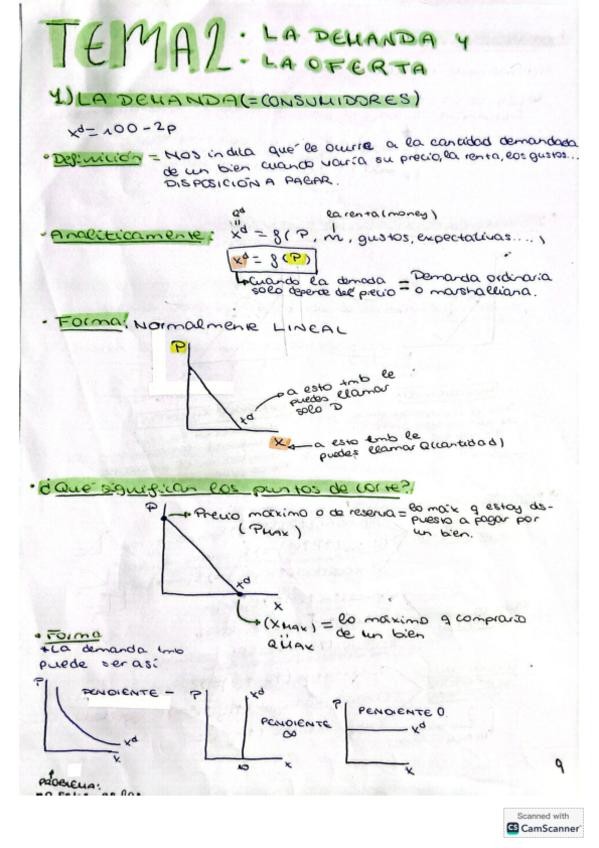 TEMA 2 · LA DEMANDA Y
· LA OFERTA
1) LA DEMANDA (=CONSUMIDORES)
xᵈ = 100 - 2p
· Definición = NOS indica qué le ocurre a la cantidad demandada
de un bien cuando varía su precio, la renta, los gustos...
DISPOSICIÓN A PAGAR.
Qᵈ la renta (money)
· Analíticamente: xᵈ = f(P, m, gustos, expectativas....)
xᵈ = f(P)
Cuando la demada = Demanda ordinaria
solo depende del precio o marshalliana.
· Forma: NORMALMENTE LINEAL
P
a esto tmb le
puedes llamar
solo D
xᵈ
X a esto tmb le
puedes llamar Q(cantidad)
· ¿Qué significan los puntos de corte?
P Precio máximo o de reserva = lo máx q estoy dis-
(PMAX) puesto a pagar por
un bien.
xᵈ
X
(XMAX) = lo máximo q compraría
QMAX de un bien
· Forma
La demanda tmb
puede ser así
P PENDIENTE -
xᵈ
X
P xᵈ
PENDIENTE
∞
X
P PENDIENTE 0
xᵈ
X
9
PROBLEMA:
Scanned with
CS CamScanner